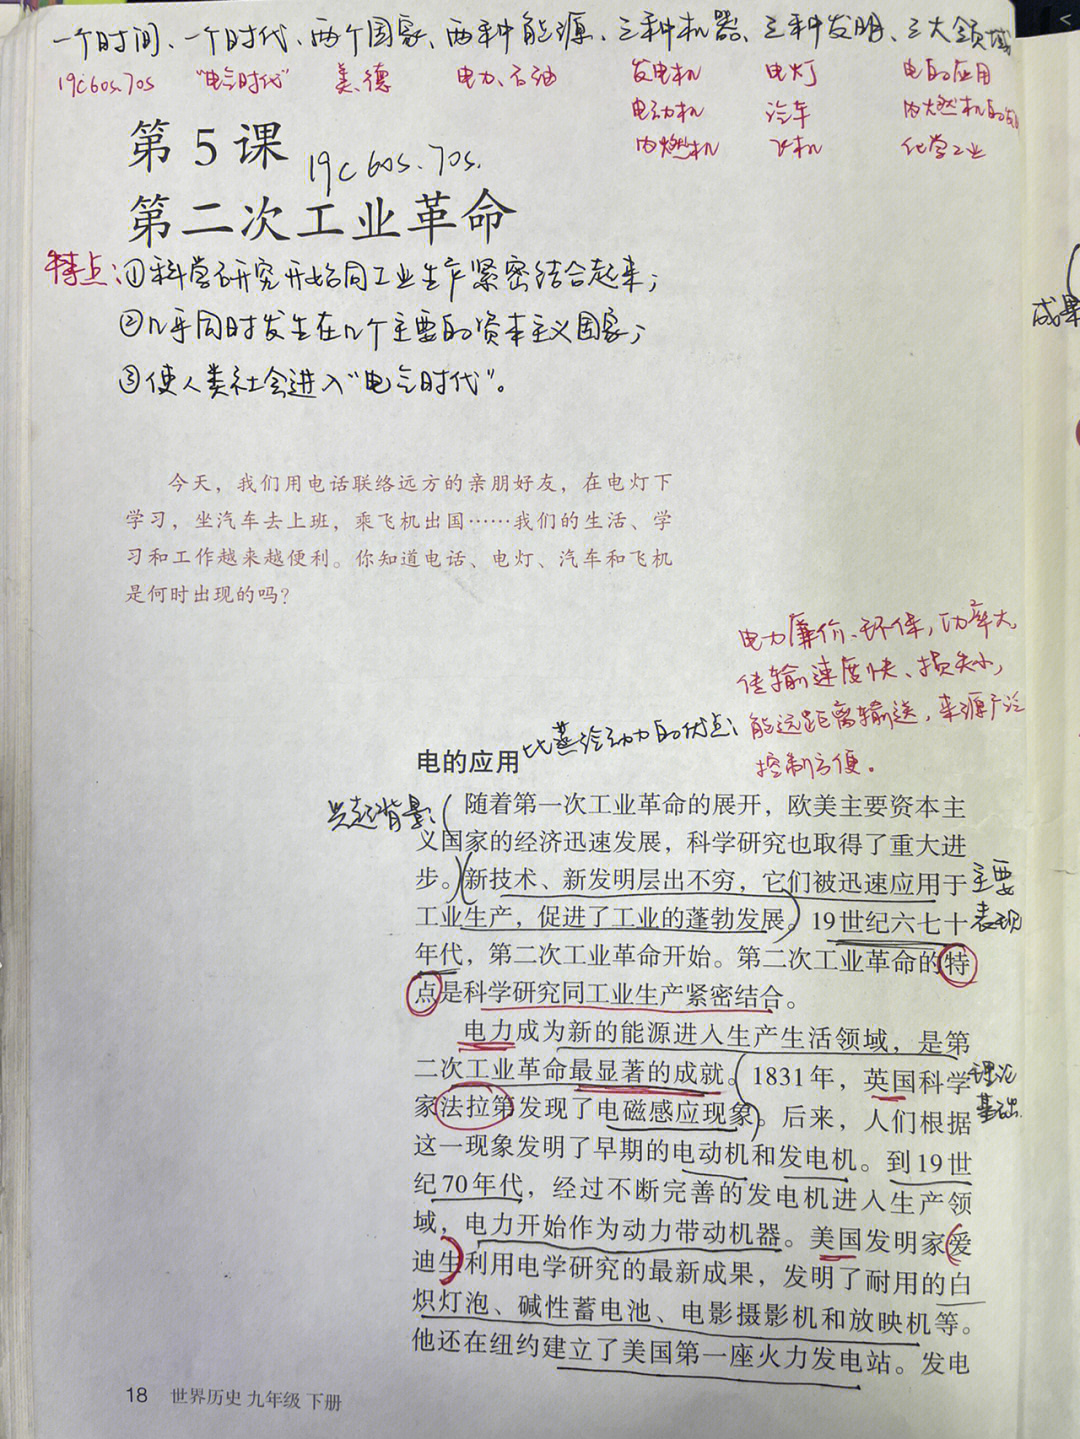 一个时间、一个时代、两个国家、两种能源、三种机器、三种发明、三大领域
19c60s.70s "电气时代" 美、德 电力、石油 发电机 电灯 电的应用
电动机 汽车 内燃机的
内燃机 飞机 化学工业
第5课 19c 60s.70s.
第二次工业革命
特点:①科学研究开始同工业生产紧密结合起来;
②几乎同时发生在几个主要的资本主义国家;
③使人类社会进入"电气时代"。
成果
今天，我们用电话联络远方的亲朋好友，在电灯下
学习，坐汽车去上班，乘飞机出国……我们的生活、学
习和工作越来越便利。你知道电话、电灯、汽车和飞机
是何时出现的吗？
电力廉价、环保,功率大,
传输速度快、损失小,
能远距离输送,来源广泛
控制方便。
电的应用 比蒸汽动力的优点:
兴起背景:
随着第一次工业革命的展开，欧美主要资本主
义国家的经济迅速发展，科学研究也取得了重大进
步。新技术、新发明层出不穷，它们被迅速应用于 主要
工业生产，促进了工业的蓬勃发展。19世纪六七十 表现
年代，第二次工业革命开始。第二次工业革命的特
点是科学研究同工业生产紧密结合。
电力成为新的能源进入生产生活领域，是第
二次工业革命最显著的成就。1831年，英国科学 理论
家法拉第发现了电磁感应现象。后来，人们根据 基础
这一现象发明了早期的电动机和发电机。到19世
纪70年代，经过不断完善的发电机进入生产领
域，电力开始作为动力带动机器。美国发明家爱
迪生利用电学研究的最新成果，发明了耐用的白
炽灯泡、碱性蓄电池、电影摄影机和放映机等。
他还在纽约建立了美国第一座火力发电站。发电
18 世界历史 九年级 下册